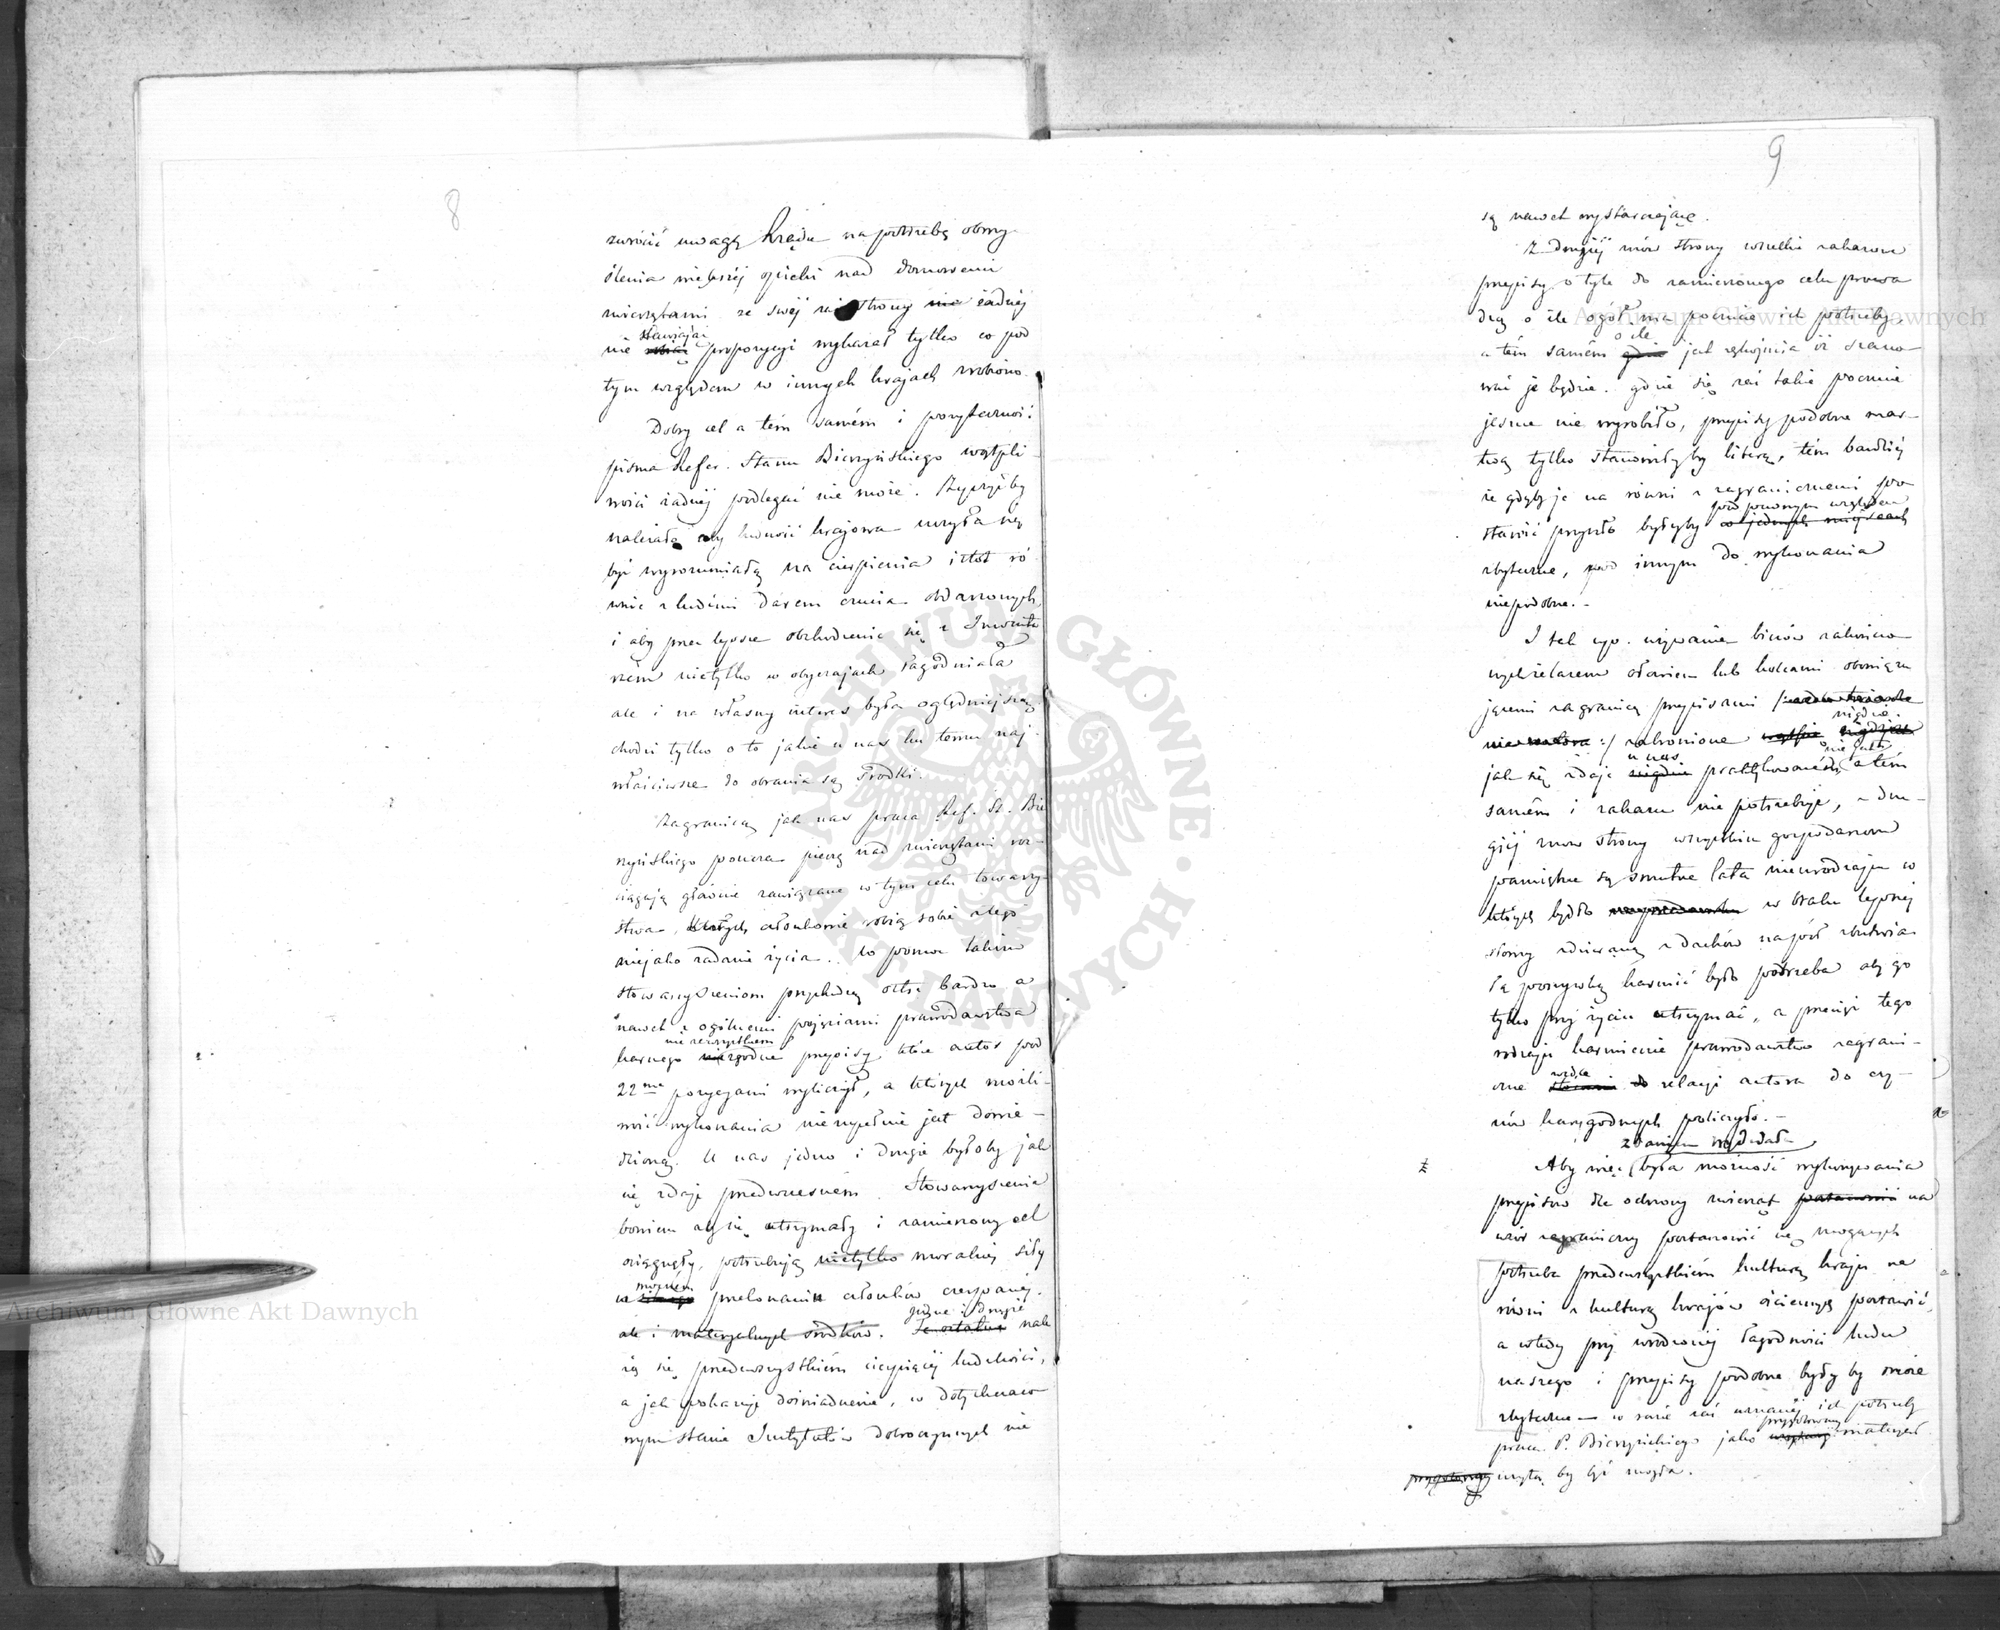 8
zwrócić uwagę Rządu na potrzebę obmy-
ślenia większéj opieki nad domowemi
zwierzętami ze swéj zaś strony nie żadnéj
nie stawiając propozycyi wykazał tylko co pod
tym względem w innych krajach zrobiono.
Dobry cel a tém samém i pożyteczność
pisma Refer. Stanu Bieczyńskiego wątpli-
wości żadnéj podlegać nie może. Życzyćby
należało aby ludność krajowa uczyła się
być wyrozumiałą na cierpienia istot ró-
wnie z ludźmi darem czucia obdarzonych,
i aby przez lepsze obchodzenie się z Inwenta
rzem nietylko w obyczajach łagodniała
ale i na własny interes była oględniejszą
chodzi tylko o to jakie u nas ku temu naj-
właściwsze do obrania są środki.
Zagranicą jak nas praca Ref. St. Bie
czyńskiego poucza pieczę nad zwierzętami roz-
ciągają głównie zawiązane w tym celu towarzy-
stwa, których członkowie robią sobie z tego
niejako zadanie życia. W pomoc takim
stowarzyszeniom przychodzą ostre bardzo a
nawet z ogólnemi pojęciami prawodawstwa
karnego nie ze wszystkiem niezgodne przepisy które autor pod
22ma pozycyami wyliczył, a których możli-
wość wykonania niezupełnie jest dowie-
dzioną. U nas jedno i drugie byłoby jak
się zdaje przedwczesném. Stowarzyszenia
bowiem aby się utrzymały i zamierzony cel
osiągnęły, potrzebują nietylko moralnéj siły
w mocném przekonaniu członków czerpanéj.
ale i materyalnych środków. Te ostatnie jedne i drugie nale
żą się przedewszystkiém cierpiącéj ludzkości,
a jak pokazuje doświadczenie, w dotychczaso
wym stanie Instytutów dobroczynnych nie
9
są nawet wystarczające.
Z drugiéj znów strony wszelkie zakazowe
przepisy o tyle do zamierzonego celu prowa
dzą o ile ogół ma poczucie ich potrzeby,
a tém samém gdzie o ile jest rękojmia iż szano-
wać je będzie. gdzie się zaś takie poczucie
jeszcze nie wyrobiło, przepisy podobne mar-
twą tylko stanowiłyby literą, tém bardziéj
że gdyby je na równi z zagranicznemi po
stawić przyszło byłyby w jednych miejscach pod pewnym względem
zbyteczne, pod innym do wykonania
niepodobne.-
I tak np. używanie biczów zakończo
nych żelazem ołowiem lub kolcami obowiązu
jącemi zagranicą przepisami
nie :/ zabronione nigdzie
jak się zdaje nigdzie u nas praktykowane nie jest, a tém
samém i zakazu nie potrzebuje, z dru-
giéj znów strony wszystkim gospodarzom
pamiętne są smutne lata nieurodzaju w
których bydło w braku lepszéj
słomy zdzieraną z dachów na pół zbutwia
łą poszywką karmić było potrzeba aby go
tylko przy życiu utrzymać, a przecież tego
rodzaju karmienie prawodawstwo zagrani-
czne wedle relacyi autora do czy-
nów karygodnych policzyło.-
zdaniem Wydziału
Aby więc była możność wykonywania
przepisów dla ochrony zwierząt postanowić na
wzór zagranicy postanowić się mogących
potrzeba przedewszystkiém kulturę kraju na
równi z kulturą krajów ościennych postawić,
a wtedy przy wrodzonéj łagodności ludu
naszego i przepisy podobne byłyby może
zbyteczne - w razie zaś uznanéj ich potrzeby
praca P. Bieczyńskiego jako przygotowany materyał
przygotowany użytą by być mogła.